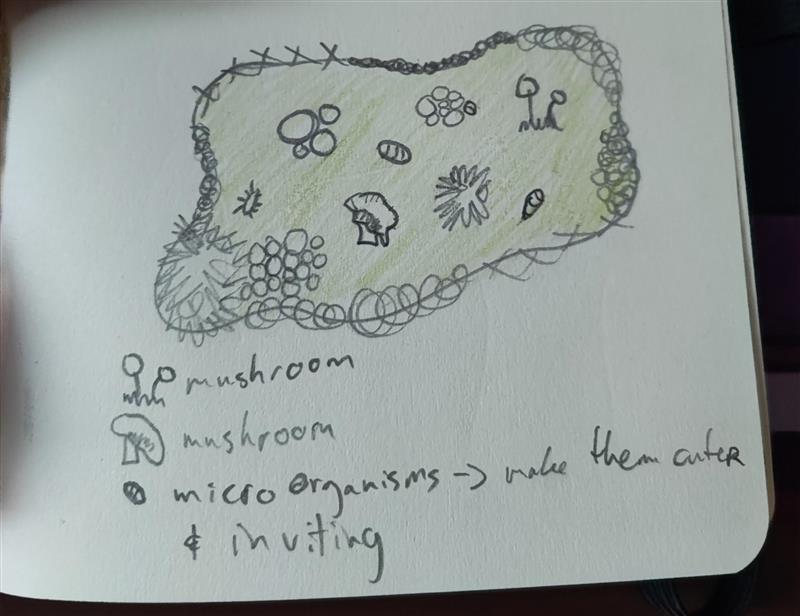 mushroom
mushroom
micro organisms → make them cuter
& inviting